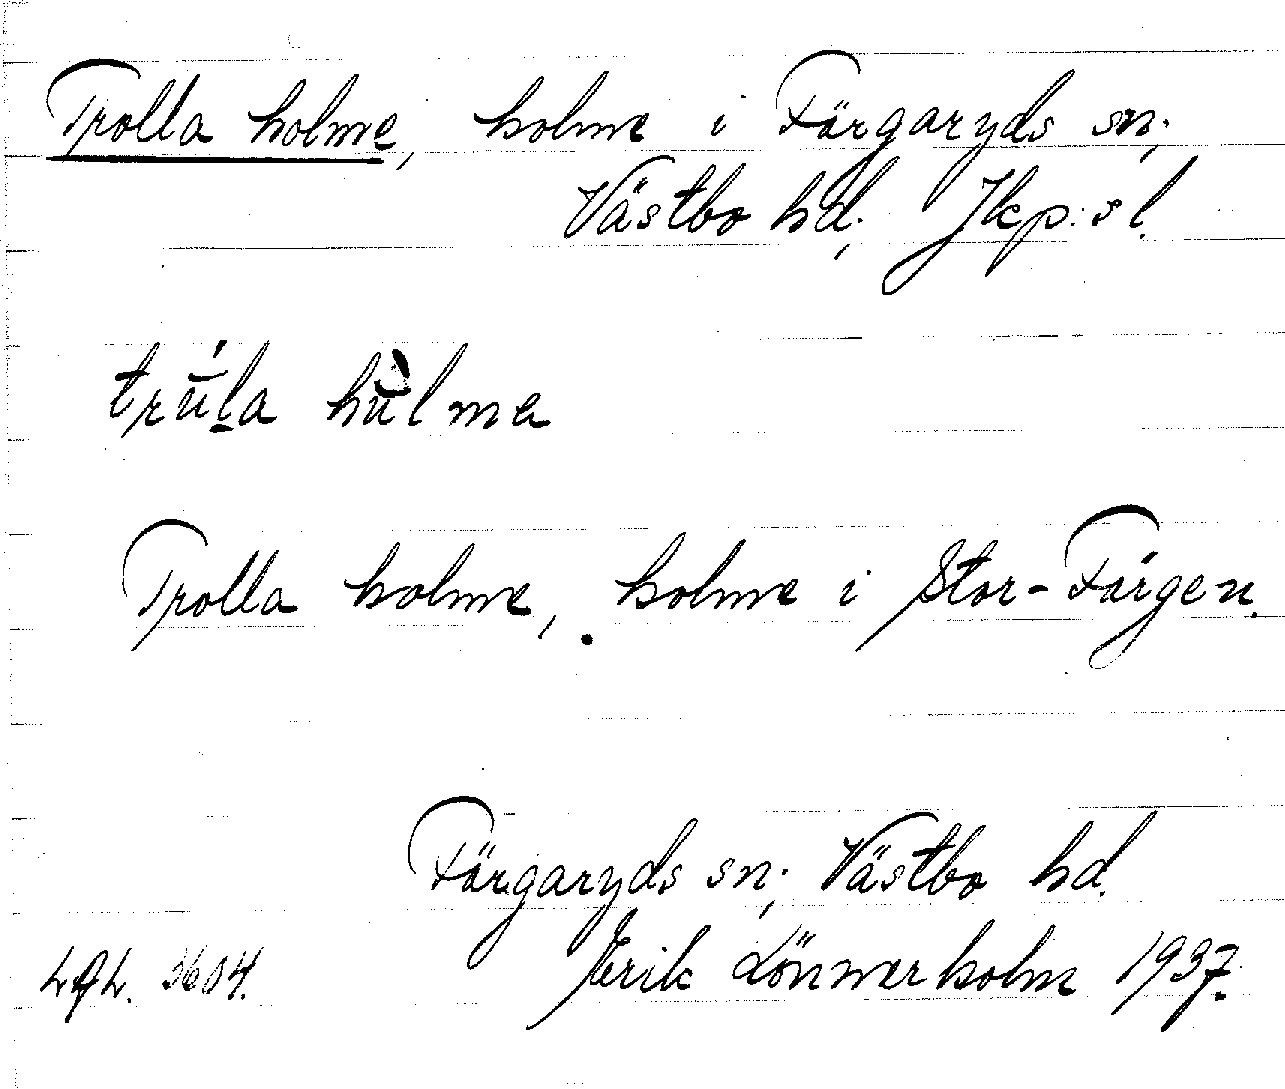 Trolla holme, holme i Färgaryds sn;
Västbo hd; Jkp:s l.
trúla hùlma
Trolla holme, holme i Stor-Färgen.
Färgaryds sn; Västbo hd.
Erik Lönnerholm 1937.